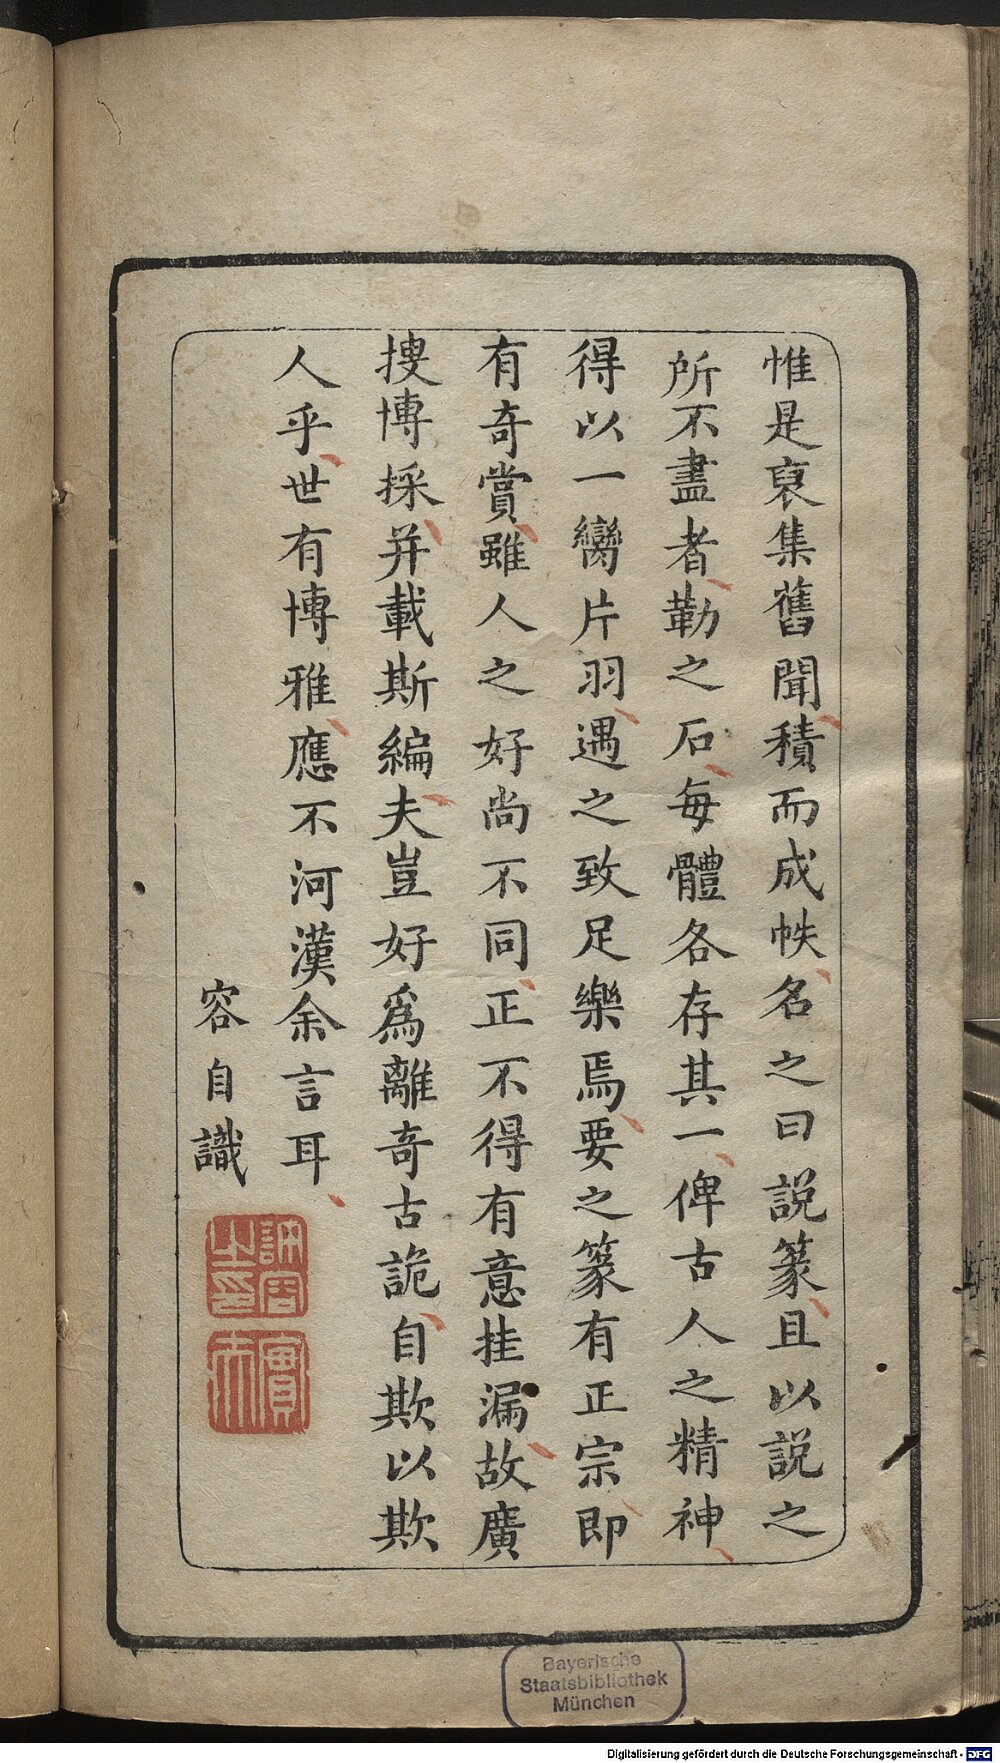 惟是裒集舊聞積而成帙名之曰說篆且以說之
所不盡者勒之石每體各存其一俾古人之精神
得以一臠片羽遇之致足樂焉要之篆有正宗即
有奇賞雖人之好尚不同正不得有意挂漏故廣
搜博採并載斯編夫豈好為離奇古詭自欺以欺
人乎世有博雅應不河漢余言耳
容自識
Bayerische
Staatsbibliothek
München
Digitalisierung gefördert durch die Deutsche Forschungsgemeinschaft - DFG